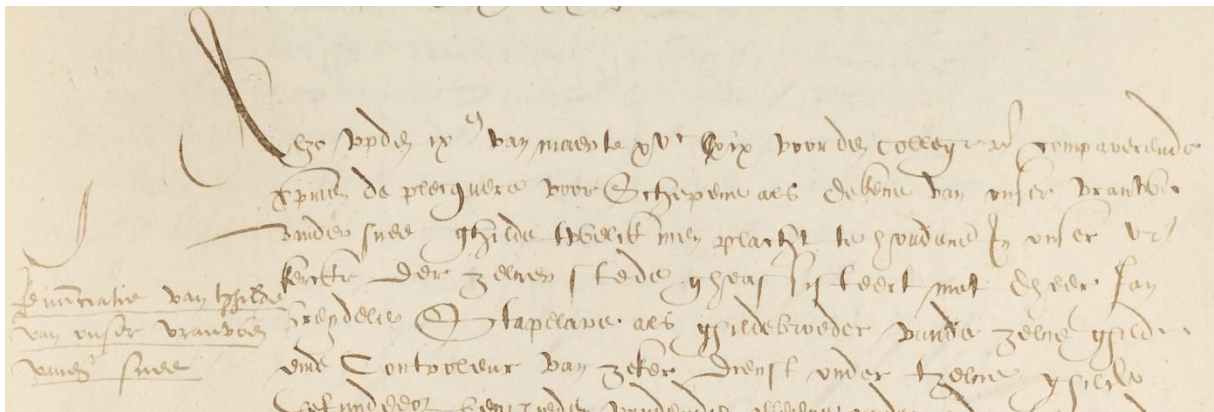 Alzo upden ix van maerte xvc lxix voor den college comparerende
de plecquere voor Schepene als dekene van onser vrauwe
vander snee ghilde twelck men placht te houdene In onser vr
kercke der zelver stede gheassisteert met dheer Jan
breydele Stapelare als ghildebroeder vande zelve ghilde
ende Controleur van zeker dienst onder tzelve ghilde
Renunciatie van tghilde
van onser vrauwen
vander snee